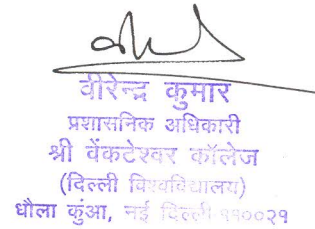 वीरेन्द्र कुमार
प्रशासनिक अधिकारी
श्री वेंकटेश्वर कॉलेज
(दिल्ली विश्वविद्यालय)
धौला कुंआ, नई दिल्ली-११००२१